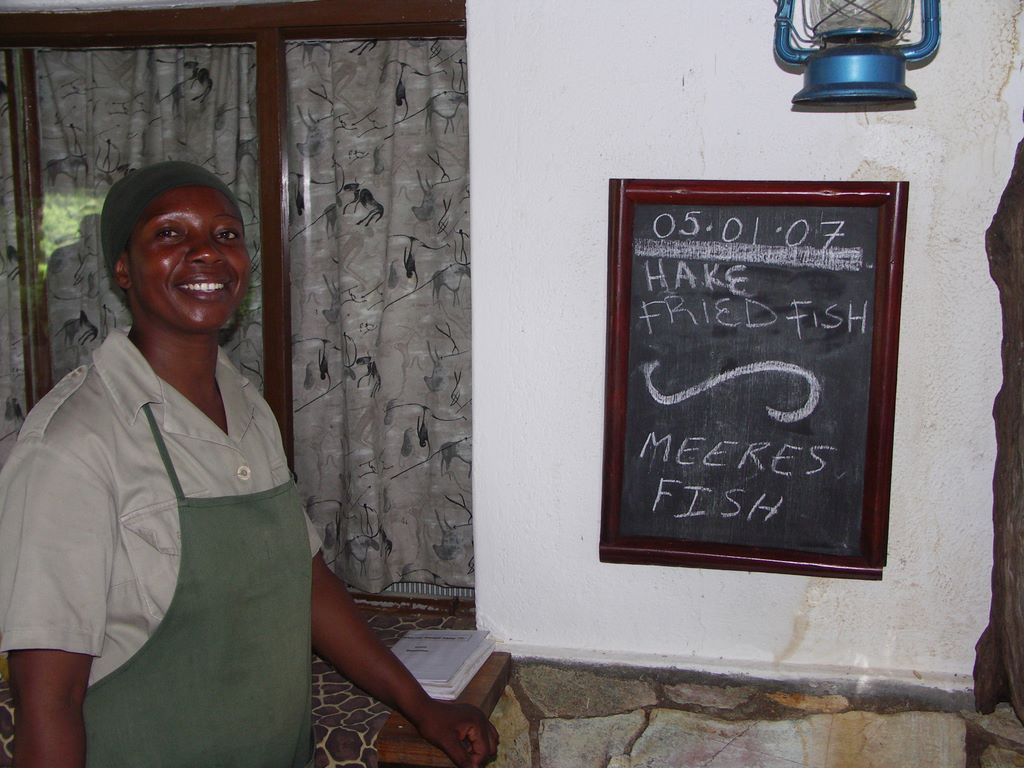 05.01.07
HAKE
FRIED FISH
MEERES
FISH